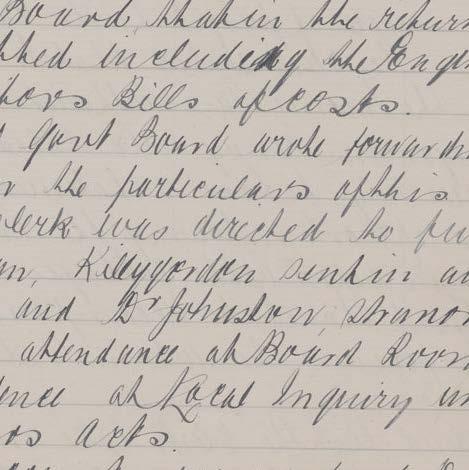 Board, that in the return
including the Eng
Bills of costs.
Govt Board wrote forwardi
the particulars of this
clerk was directed to fu
Killygordon sent in a
and Dr Johnston, Stranor
attendance at Board Room
ence at Local Inquiry un
os acts.